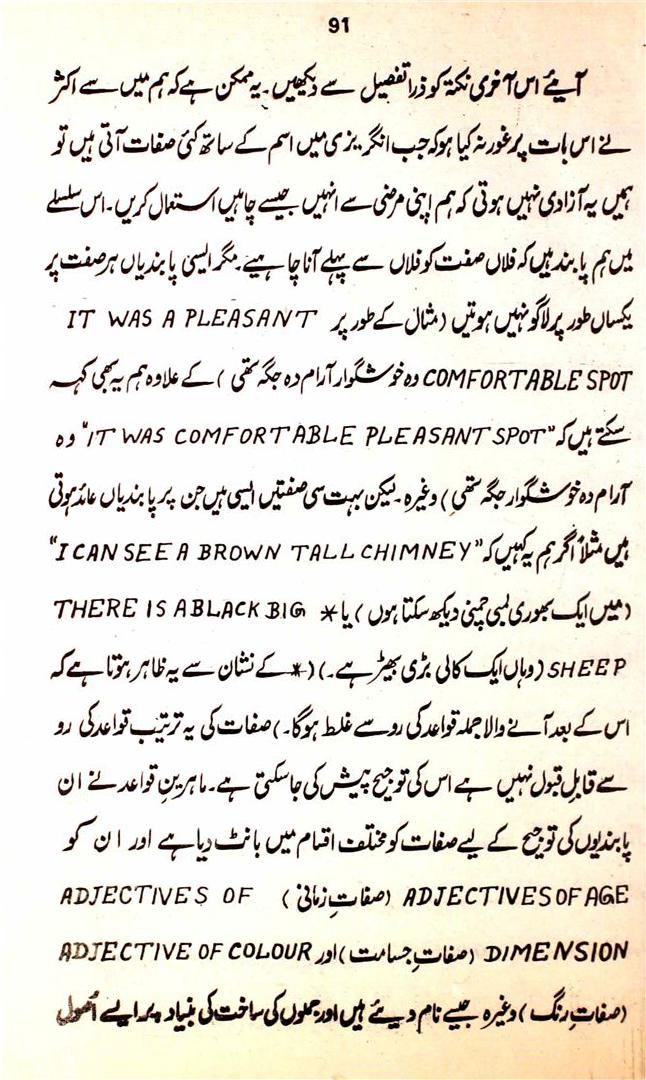 91
آیئے اس آخری نکتہ کو ذرا تفصیل سے دیکھیں۔ یہ ممکن ہے کہ ہم میں سے اکثر
نے اس بات پر غور نہ کیا ہو کہ جب انگریزی میں اسم کے ساتھ کئی صفات آتی ہیں تو
ہمیں یہ آزادی نہیں ہوتی کہ ہم اپنی مرضی سے انہیں جیسے چاہیں استعمال کریں۔ اس سلسلے
میں ہم پابند ہیں کہ فلاں صفت کو فلاں سے پہلے آنا چاہیے۔ مگر ایسی پابندیاں ہر صفت پر
یکساں طور پر لاگو نہیں ہوتیں (مثال کے طور پر IT WAS A PLEASANT
COMFORTABLE SPOT وہ خوشگوار آرام دہ جگہ تھی) کے علاوہ ہم یہ بھی کہہ
سکتے ہیں کہ "IT WAS COMFORTABLE PLEASANT SPOT" وہ
آرام دہ خوشگوار جگہ تھی) وغیرہ۔ لیکن بہت سی صفتیں ایسی ہیں جن پر پابندیاں عائد ہوتی
ہیں مثلاً اگر ہم یہ کہیں کہ "I CAN SEE A BROWN TALL CHIMNEY"
(میں ایک بھوری لمبی چمنی دیکھ سکتا ہوں) یا * THERE IS A BLACK BIG
SHEEP (وہاں ایک کالی بڑی بھیڑ ہے۔) (* کے نشان سے یہ ظاہر ہوتا ہے کہ
اس کے بعد آنے والا جملہ قواعد کی رو سے غلط ہوگا۔) صفات کی یہ ترتیب قواعد کی رو
سے قابلِ قبول نہیں ہے اس کی توجیح پیش کی جا سکتی ہے۔ ماہرینِ قواعد نے ان
پابندیوں کی توجیح کے لیے صفات کو مختلف اقسام میں بانٹ دیا ہے اور ان کو
ADJECTIVES OF AGE (صفاتِ زمانی) ADJECTIVES OF
DIMENSION (صفاتِ جسامت) اور ADJECTIVE OF COLOUR
(صفاتِ رنگ) وغیرہ جیسے نام دیئے ہیں اور جملوں کی ساخت کی بنیاد پر ایسے اصول